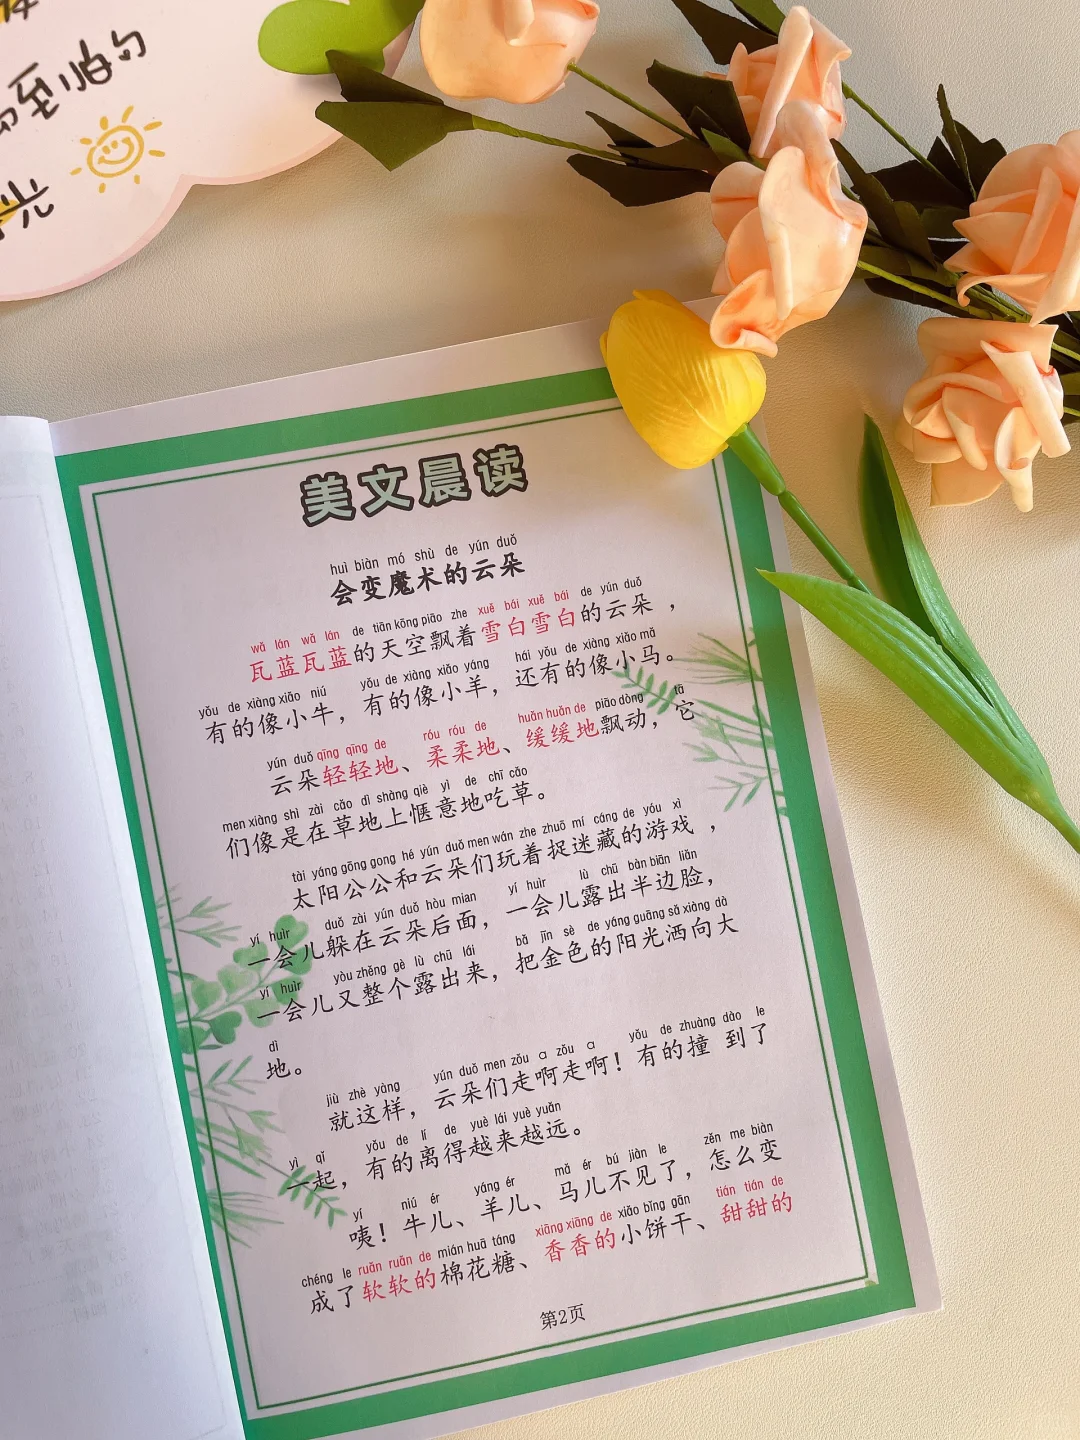 至怕的
光
美文晨读
huì biàn mó shù de yún duǒ
会变魔术的云朵
wǎ lán wǎ lán de tiān kōng piāo zhe xuě bái xuě bái de yún duǒ
瓦蓝瓦蓝的天空飘着雪白雪白的云朵，
yǒu de xiàng xiǎo niú yǒu de xiàng xiǎo yáng hái yǒu de xiàng xiǎo mǎ
有的像小牛，有的像小羊，还有的像小马。
yún duǒ qīng qīng de róu róu de huǎn huǎn de piāo dòng tā
云朵轻轻地、柔柔地、缓缓地飘动，它
men xiàng shì zài cǎo dì shàng qiè yì de chī cǎo
们像是在草地上惬意地吃草。
tài yáng gōng gong hé yún duǒ men wán zhe zhuō mí cáng de yóu xì
太阳公公和云朵们玩着捉迷藏的游戏，
yí huìr duǒ zài yún duǒ hòu mian yí huìr lù chū bàn biān liǎn
一会儿躲在云朵后面，一会儿露出半边脸，
yí huìr yòu zhěng gè lù chū lái bǎ jīn sè de yáng guāng sǎ xiàng dà
一会儿又整个露出来，把金色的阳光洒向大
dì
地。
jiù zhè yàng yún duǒ men zǒu a zǒu a yǒu de zhuàng dào le
就这样，云朵们走啊走啊！有的撞到了
yì qǐ yǒu de lí de yuè lái yuè yuǎn
一起，有的离得越来越远。
yí niú ér yáng ér mǎ ér bú jiàn le zěn me biàn
咦！牛儿、羊儿、马儿不见了，怎么变
chéng le ruǎn ruǎn de mián huā táng xiāng xiāng de xiǎo bǐng gān tián tián de
成了软软的棉花糖、香香的小饼干、甜甜的
第2页